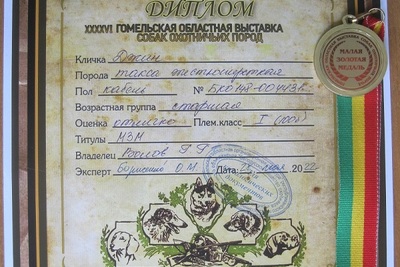 ДИПЛОМ
XXXXVI ГОМЕЛЬСКАЯ ОБЛАСТНАЯ ВЫСТАВКА
СОБАК ОХОТНИЧЬИХ ПОРОД
Кличка Джин
Порода такса жесткошерстная
Пол кобель № БКО
Возрастная группа старшая
Оценка отлично Плем.класс I
Титулы МЗМ
Владелец
Эксперт О.М. Дата: мая 2022
МАЛАЯ
ЗОЛОТАЯ
МЕДАЛЬ